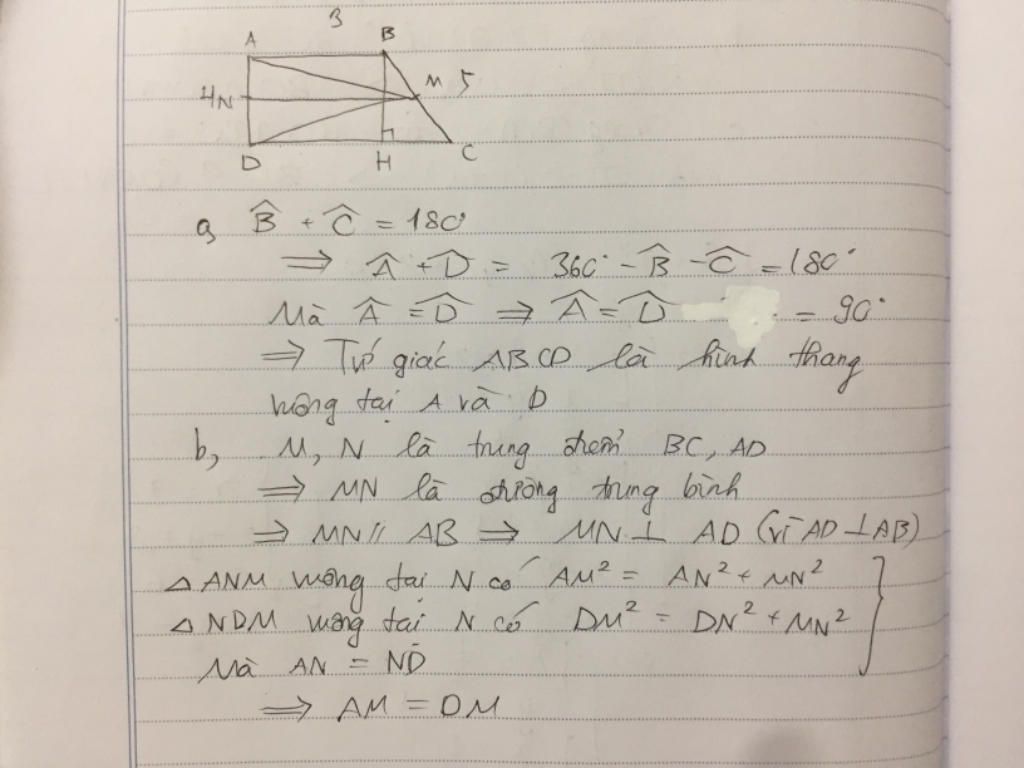 3
A B
4 N M 5
D H C
a, B̂ + Ĉ = 180°
⇒ Â + D̂ = 360° - B̂ - Ĉ = 180°
Mà Â = D̂ ⇒ Â = D̂ = 90°
⇒ Tứ giác ABCD là hình thang
vuông tại A và D
b, M, N là trung điểm BC, AD
⇒ MN là đường trung bình
⇒ MN // AB ⇒ MN ⊥ AD (vì AD ⊥ AB)
△ ANM vuông tại N có AM² = AN² + MN²
△ NDM vuông tại N có DM² = DN² + MN²
Mà AN = ND
⇒ AM = DM